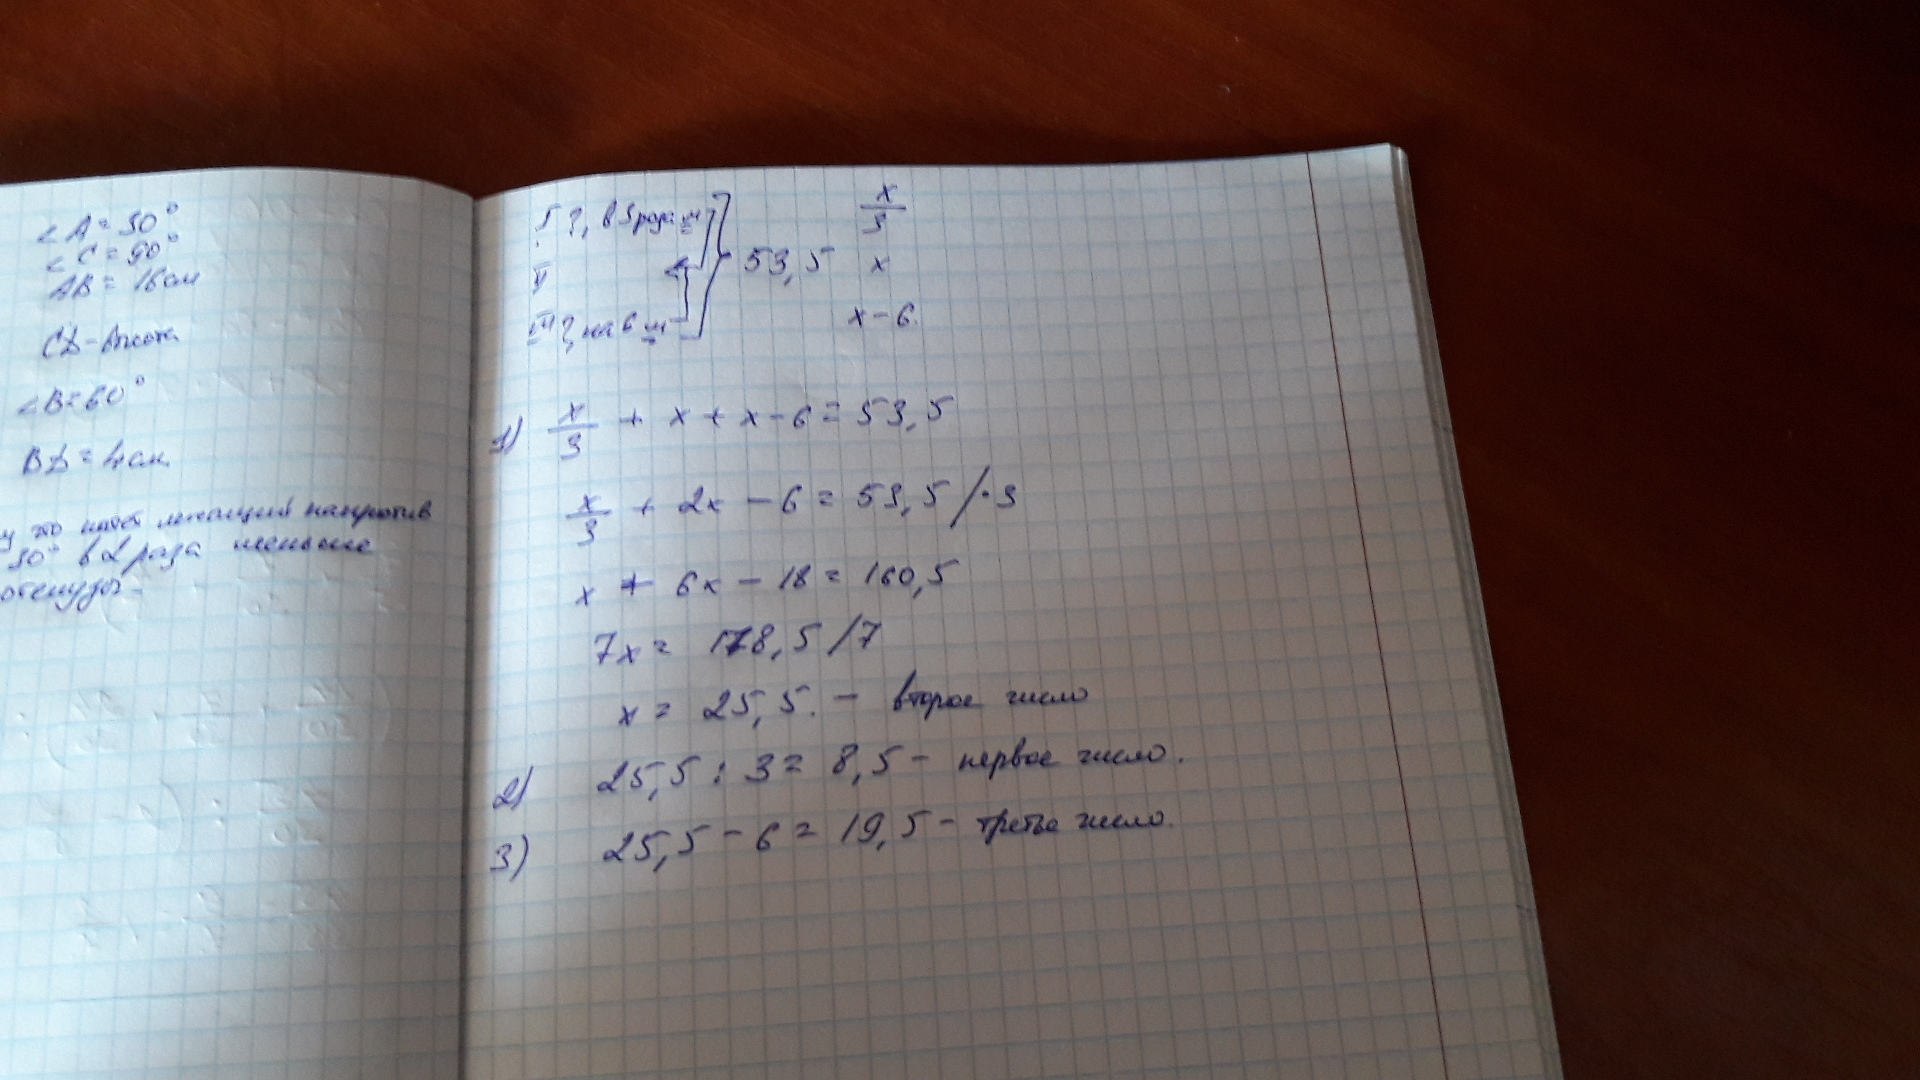 ∠A = 30°
∠C = 90°
AB = 16см
CD - высота
∠B = 60°
BD = 4см.
лежащий напротив
30° в 2 раза меньше
I ?, в 3 раза м
II
III ?, на 6 м
53,5
x/3
x
x - 6.
1) x/3 + x + x - 6 = 53,5
x/3 + 2x - 6 = 53,5 /·3
x + 6x - 18 = 160,5
7x = 178,5 /7
x = 25,5. - второе число
2) 25,5 : 3 = 8,5 - первое число.
3) 25,5 - 6 = 19,5 - третье число.